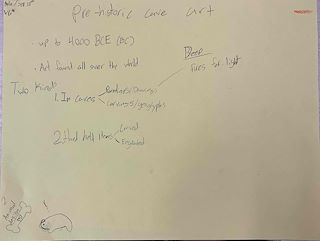 Pre-historic Cave art
• up to 4000 BCE (BC)
• Art found all over the world
Deep
fires for light
Two Kinds
1. In caves
Paintings/Drawings
Carvings/geoglyphs
2. Hand held items
Carved
Engraved